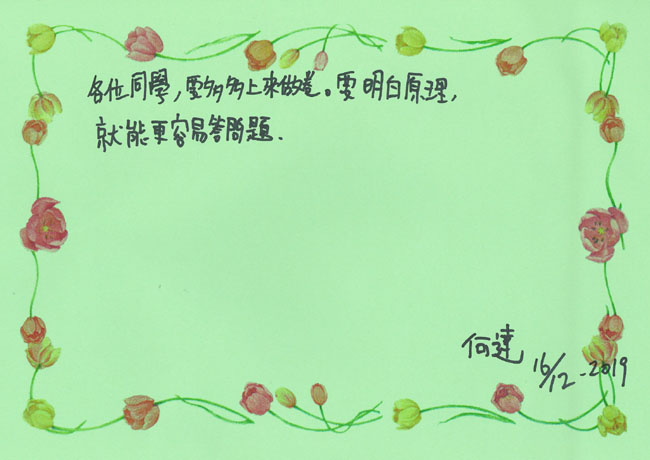 各位同學，要多多上來做卷。要明白原理，
就能更容易答問題.
何達
16/12-2019